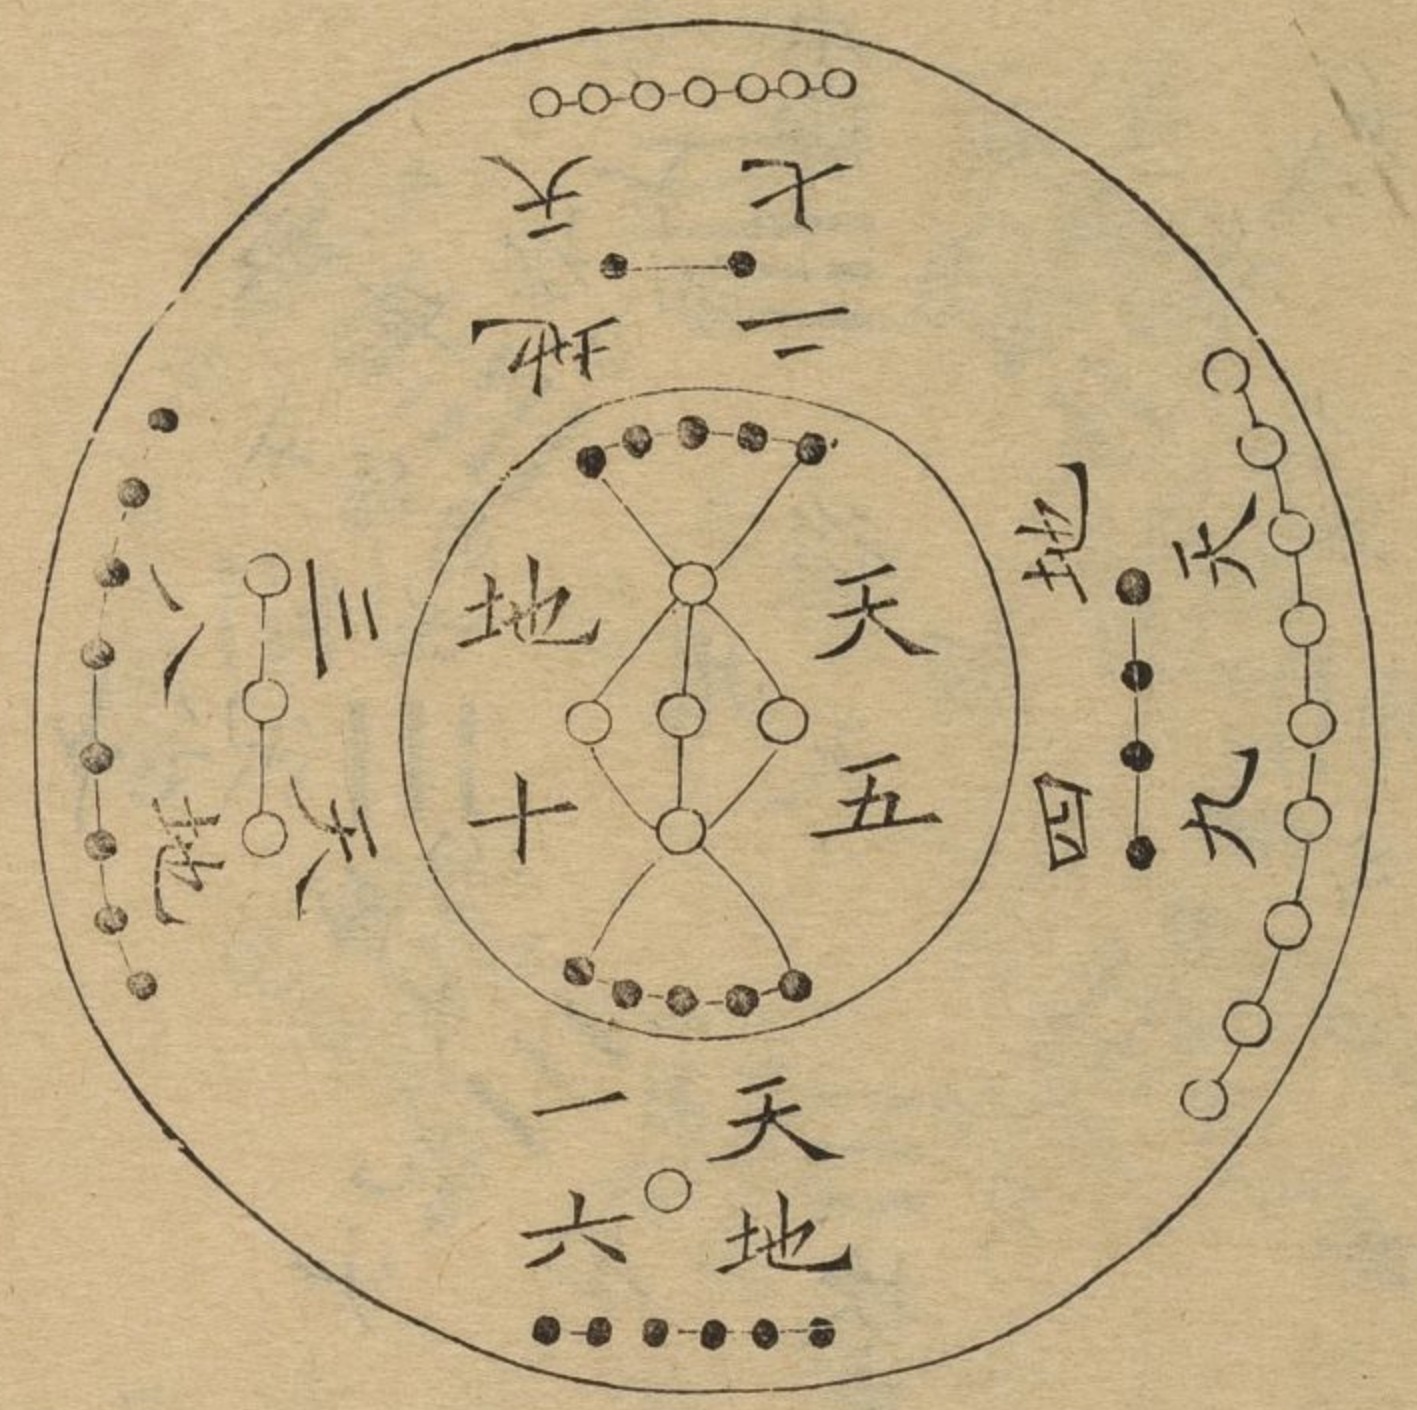 天七
地二
天九
地四
天五
地十
天三
地八
天一
地六